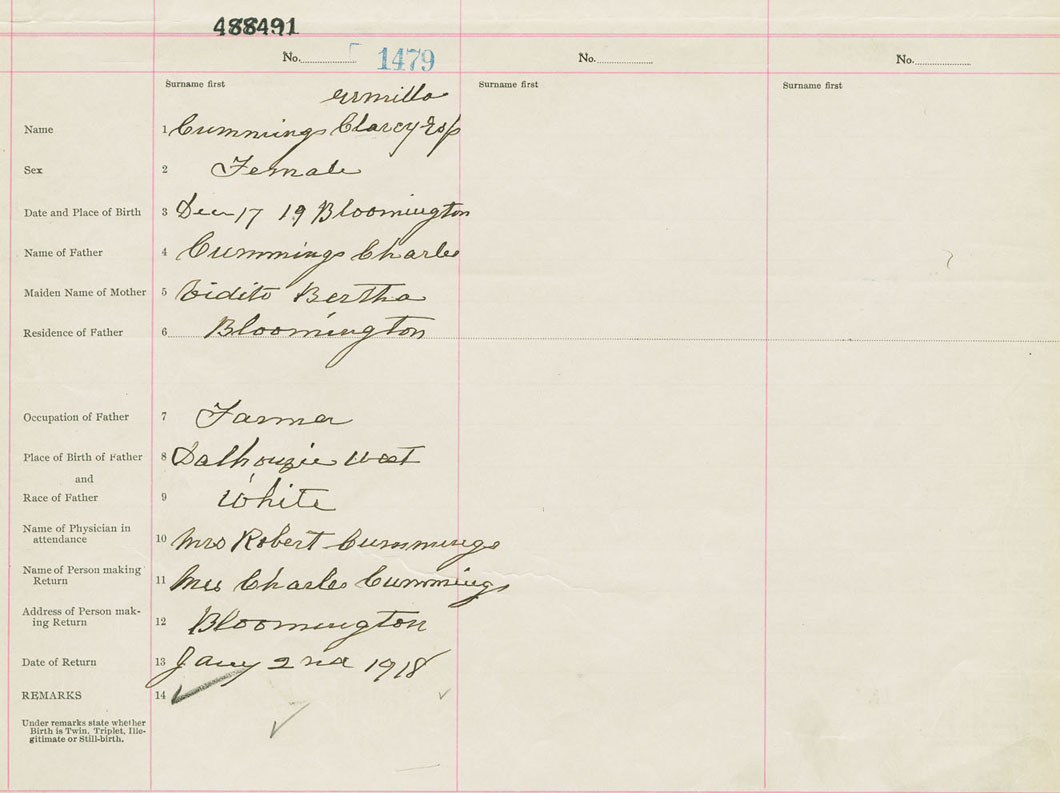 488491
No. 1479
No.
No.
Surname first
Surname first
Surname first
Name 1 Cummings
Sex 2 Female
Date and Place of Birth 3 Dec 17 19 Bloomington
Name of Father 4 Cummings Charles
Maiden Name of Mother 5 Vidito Bertha
Residence of Father 6 Bloomington
Occupation of Father 7 Farmer
Place of Birth of Father 8 Dalhouzie West
and
Race of Father 9 White
Name of Physician in
attendance 10 Mrs Robert Cummings
Name of Person making
Return 11 Mrs Charles Cummings
Address of Person mak-
ing Return 12 Bloomington
Date of Return 13 Jany 2nd 1918
REMARKS 14
Under remarks state whether
Birth is Twin, Triplet, Ille-
gitimate or Still-birth.